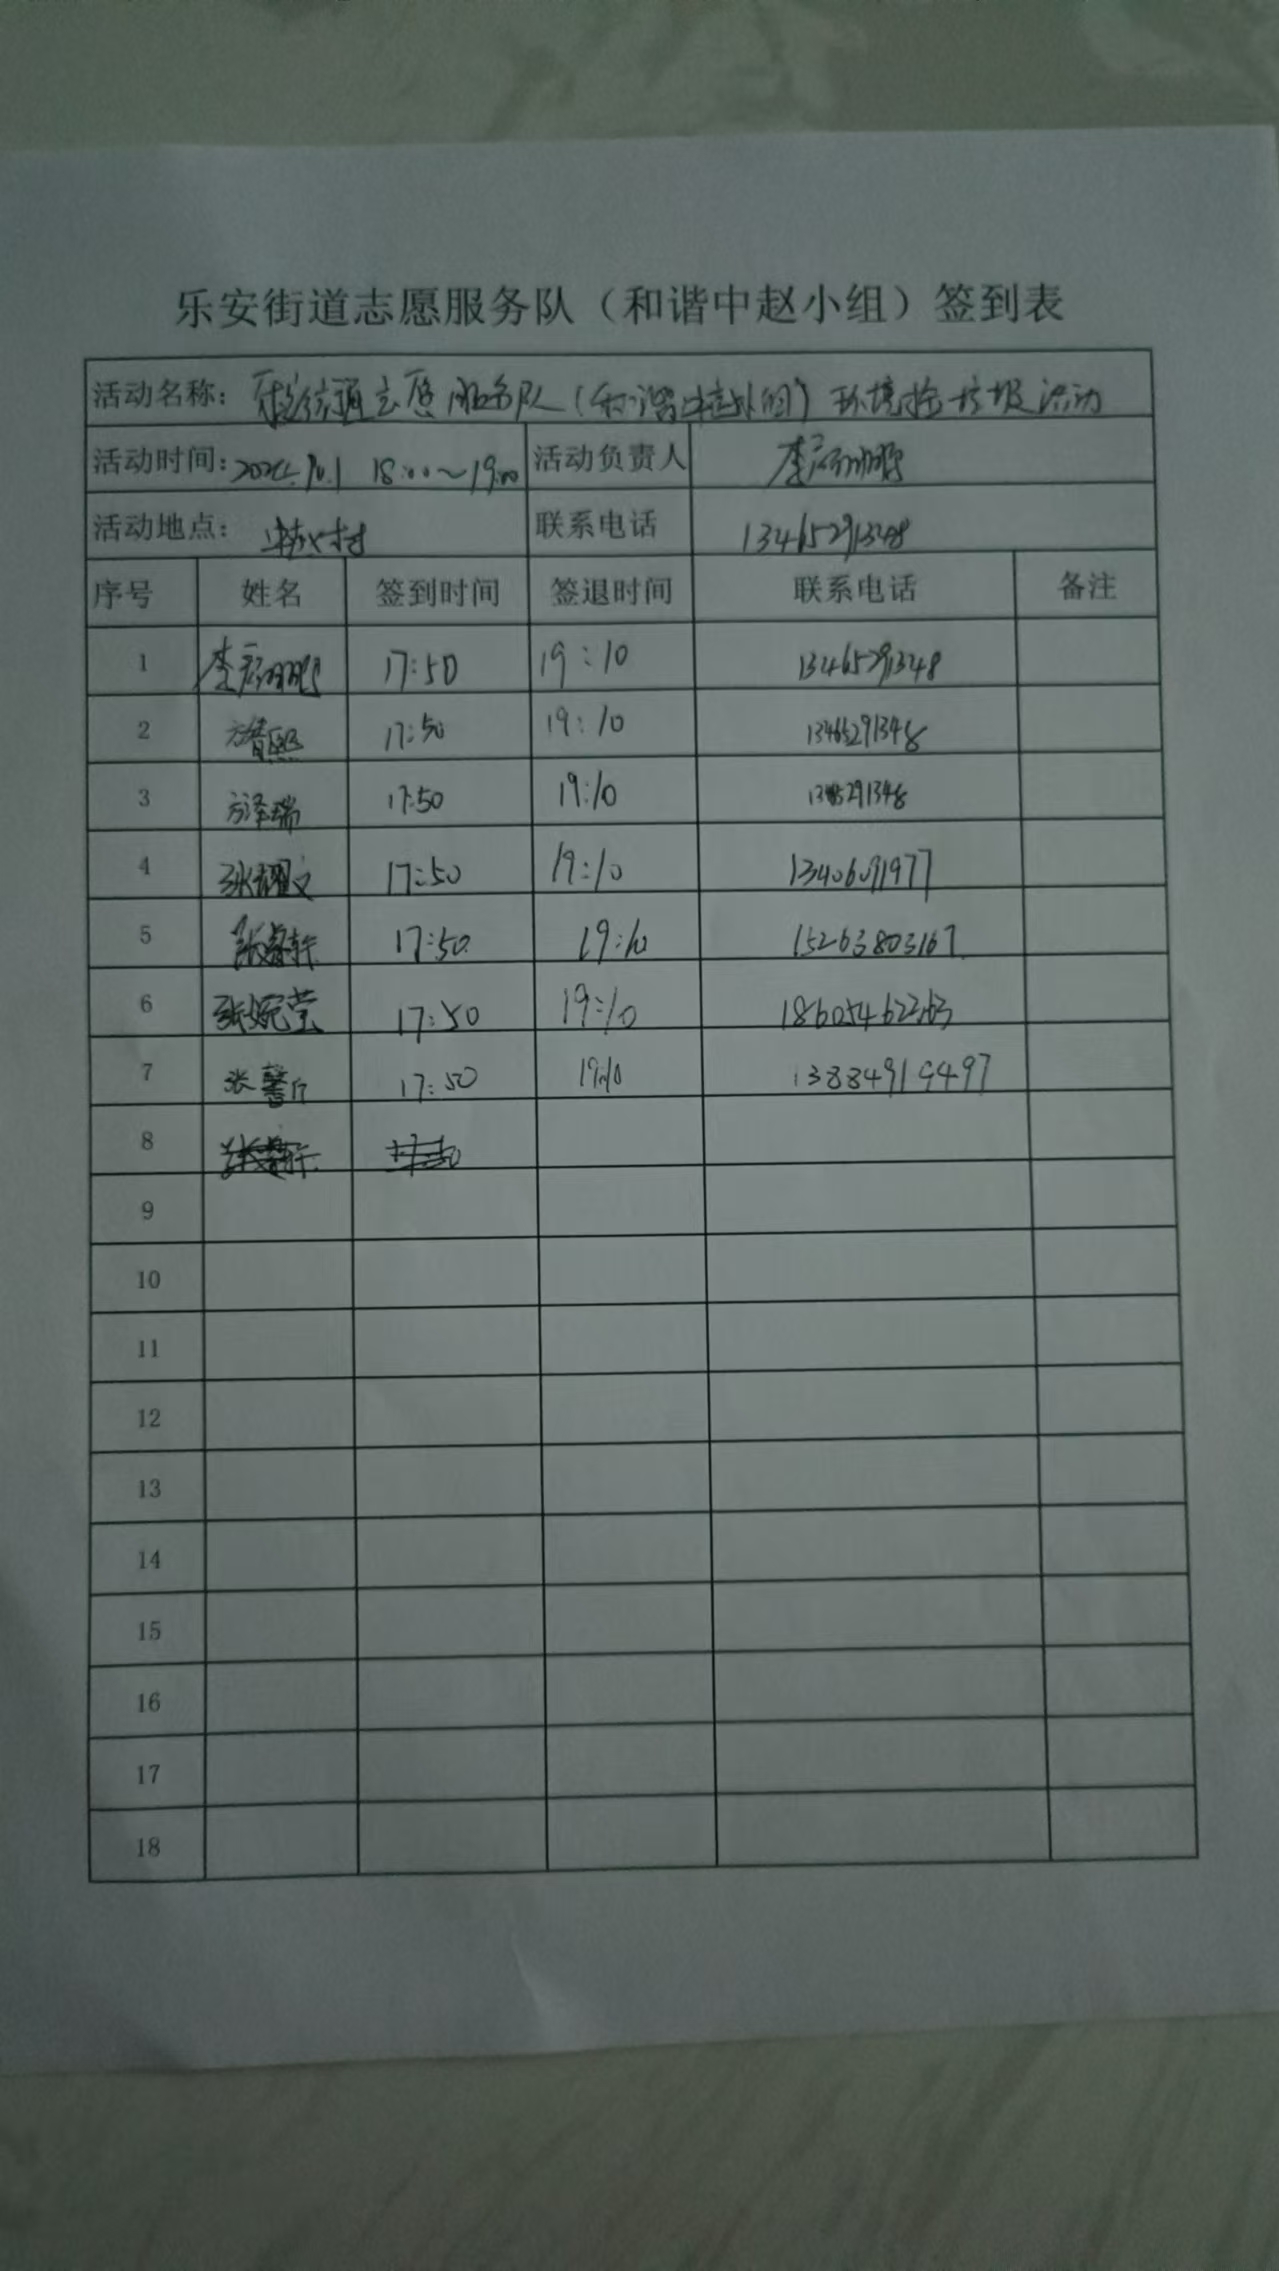 乐安街道志愿服务队（和谐中赵小组）签到表
活动名称： 志愿服务队（和谐中赵小组）环境捡垃圾活动
活动时间： 10.1 18:00～19:00 活动负责人 李
活动地点： 村 联系电话 13465291348
序号 姓名 签到时间 签退时间 联系电话 备注
1 李 17:50 19:10 13465291348
2 方 熙 17:50 19:10 13465291348
3 方泽瑞 17:50 19:10
4 张耀文 17:50 19:10 13406091977
5 张睿轩 17:50 19:10 15263803167
6 张婉莹 17:50 19:10 18605462263
7 张馨 17:50 19:10
8
9
10
11
12
13
14
15
16
17
18